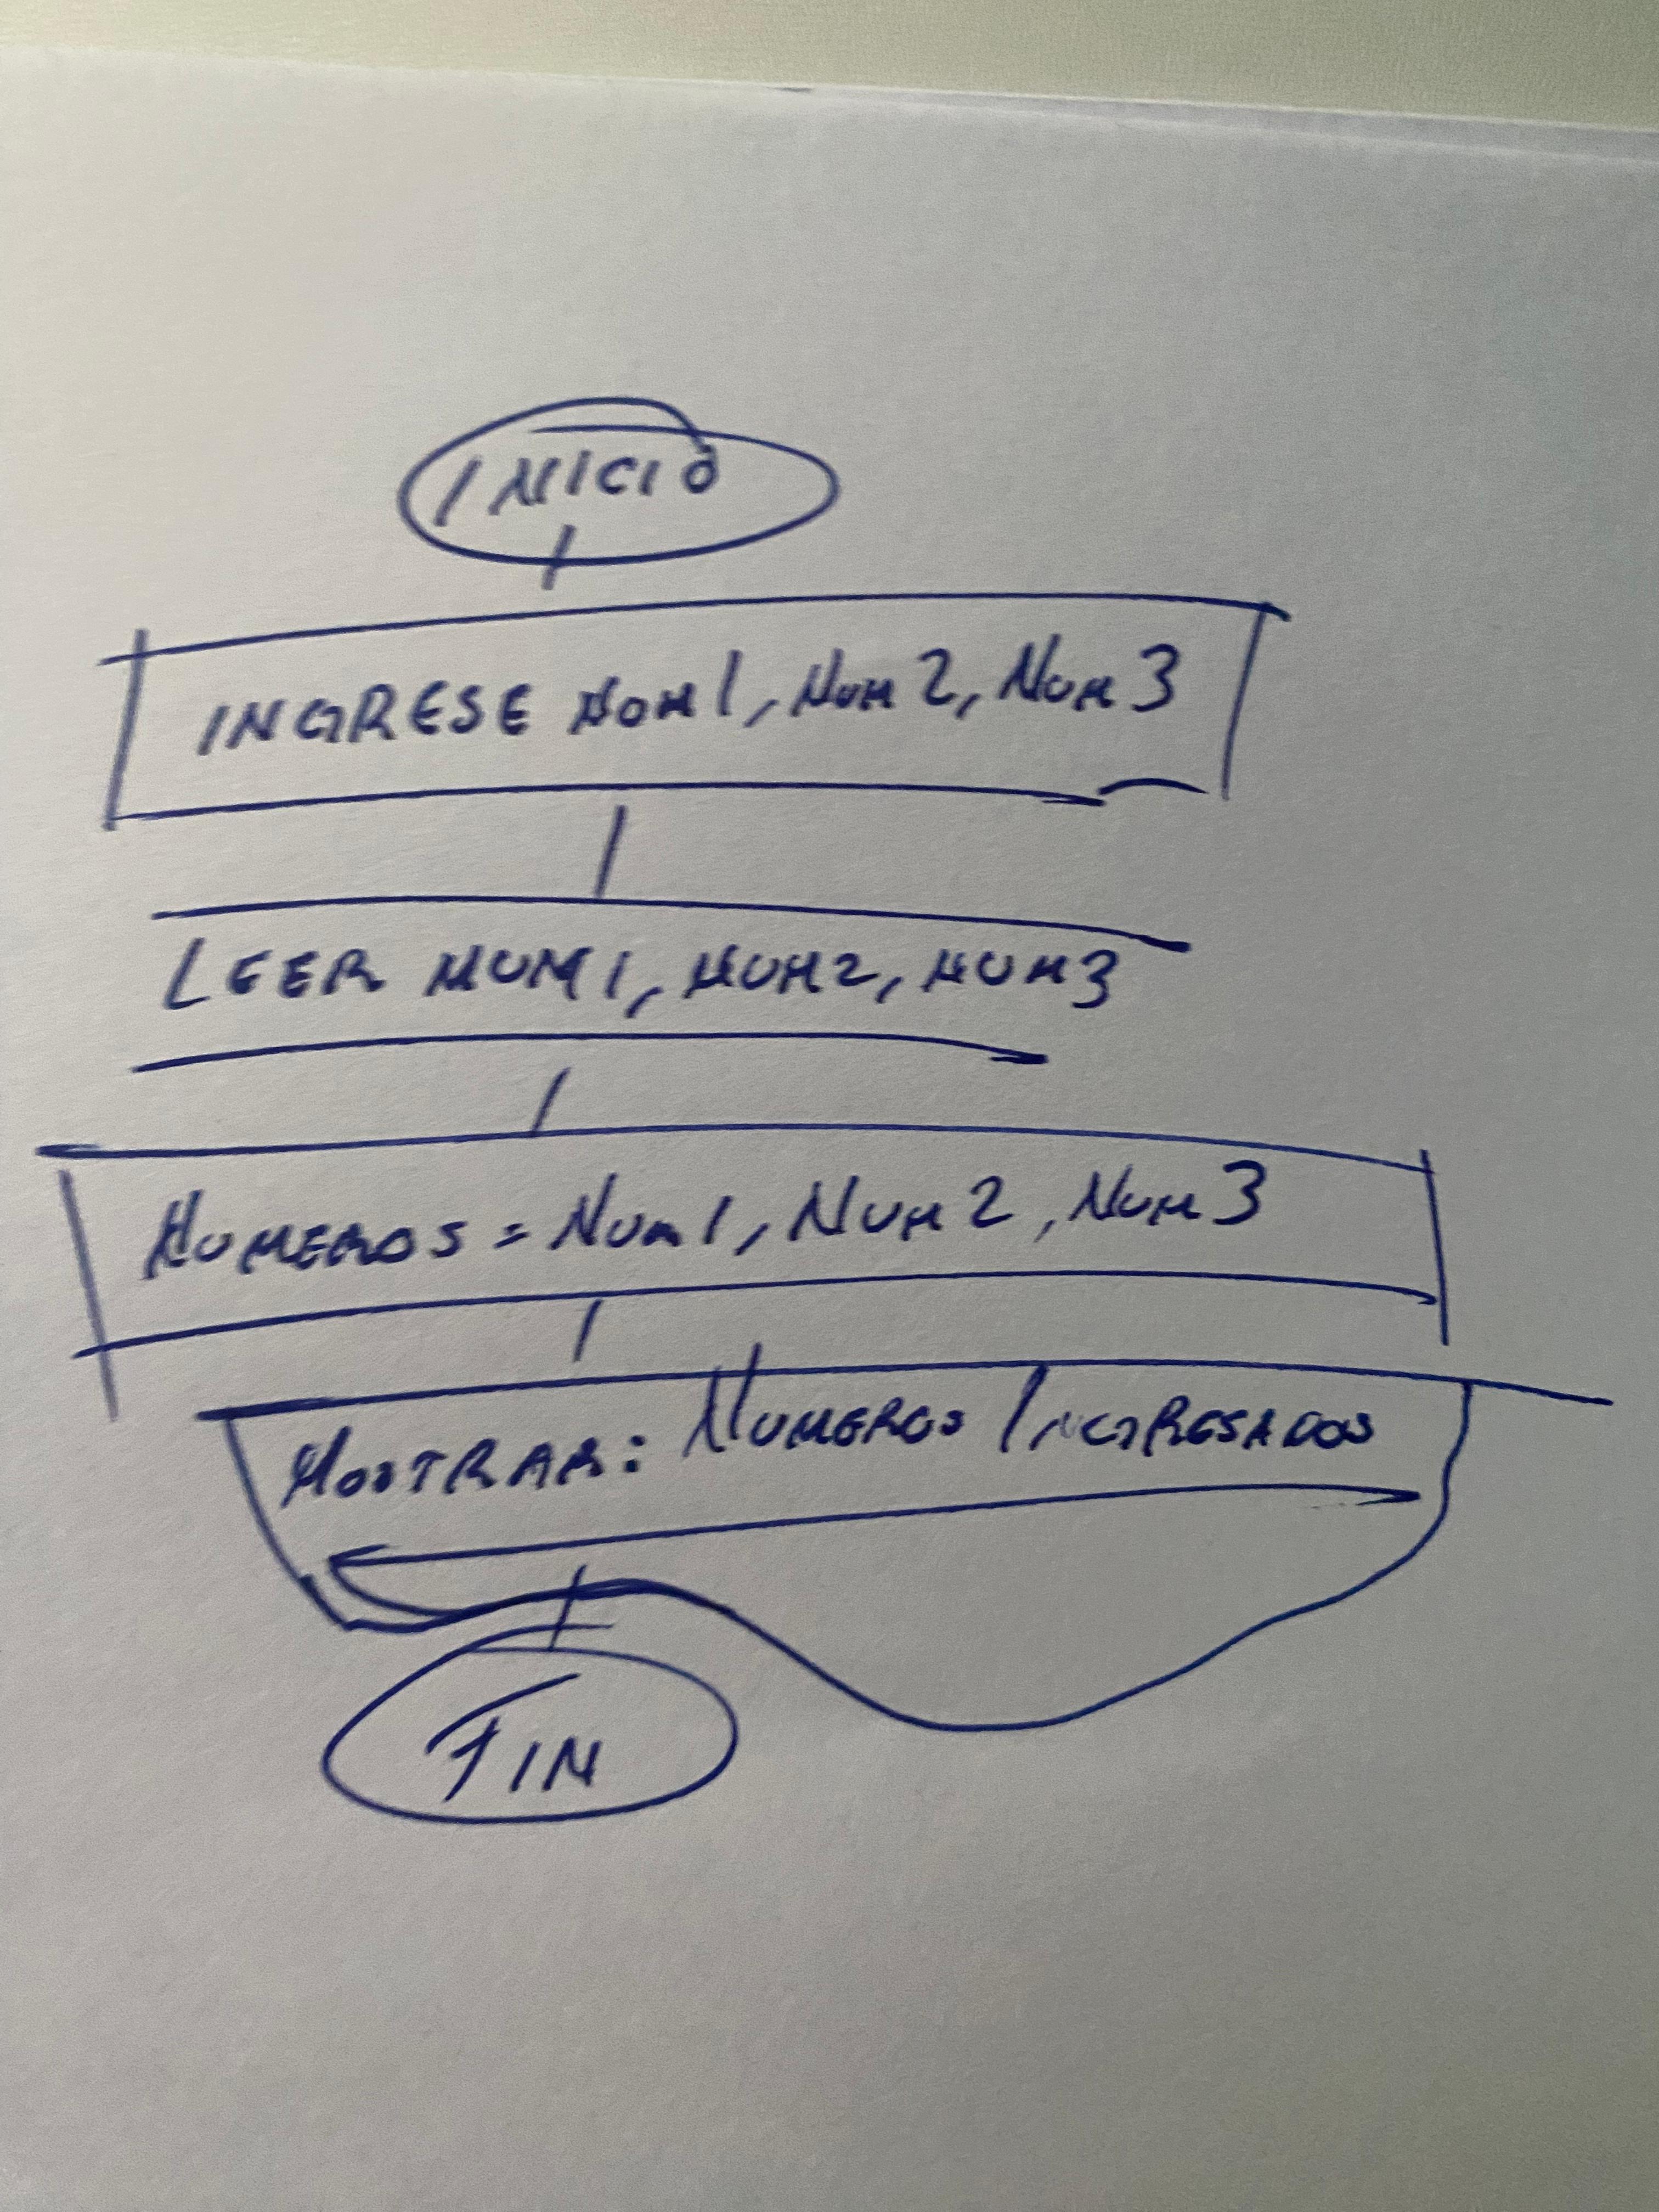 INICIO
INGRESE NUM1, NUM2, NUM3
LEER NUM1, NUM2, NUM3
NUMEROS = NUM1, NUM2, NUM3
MOSTRAR: NUMEROS INGRESADOS
FIN